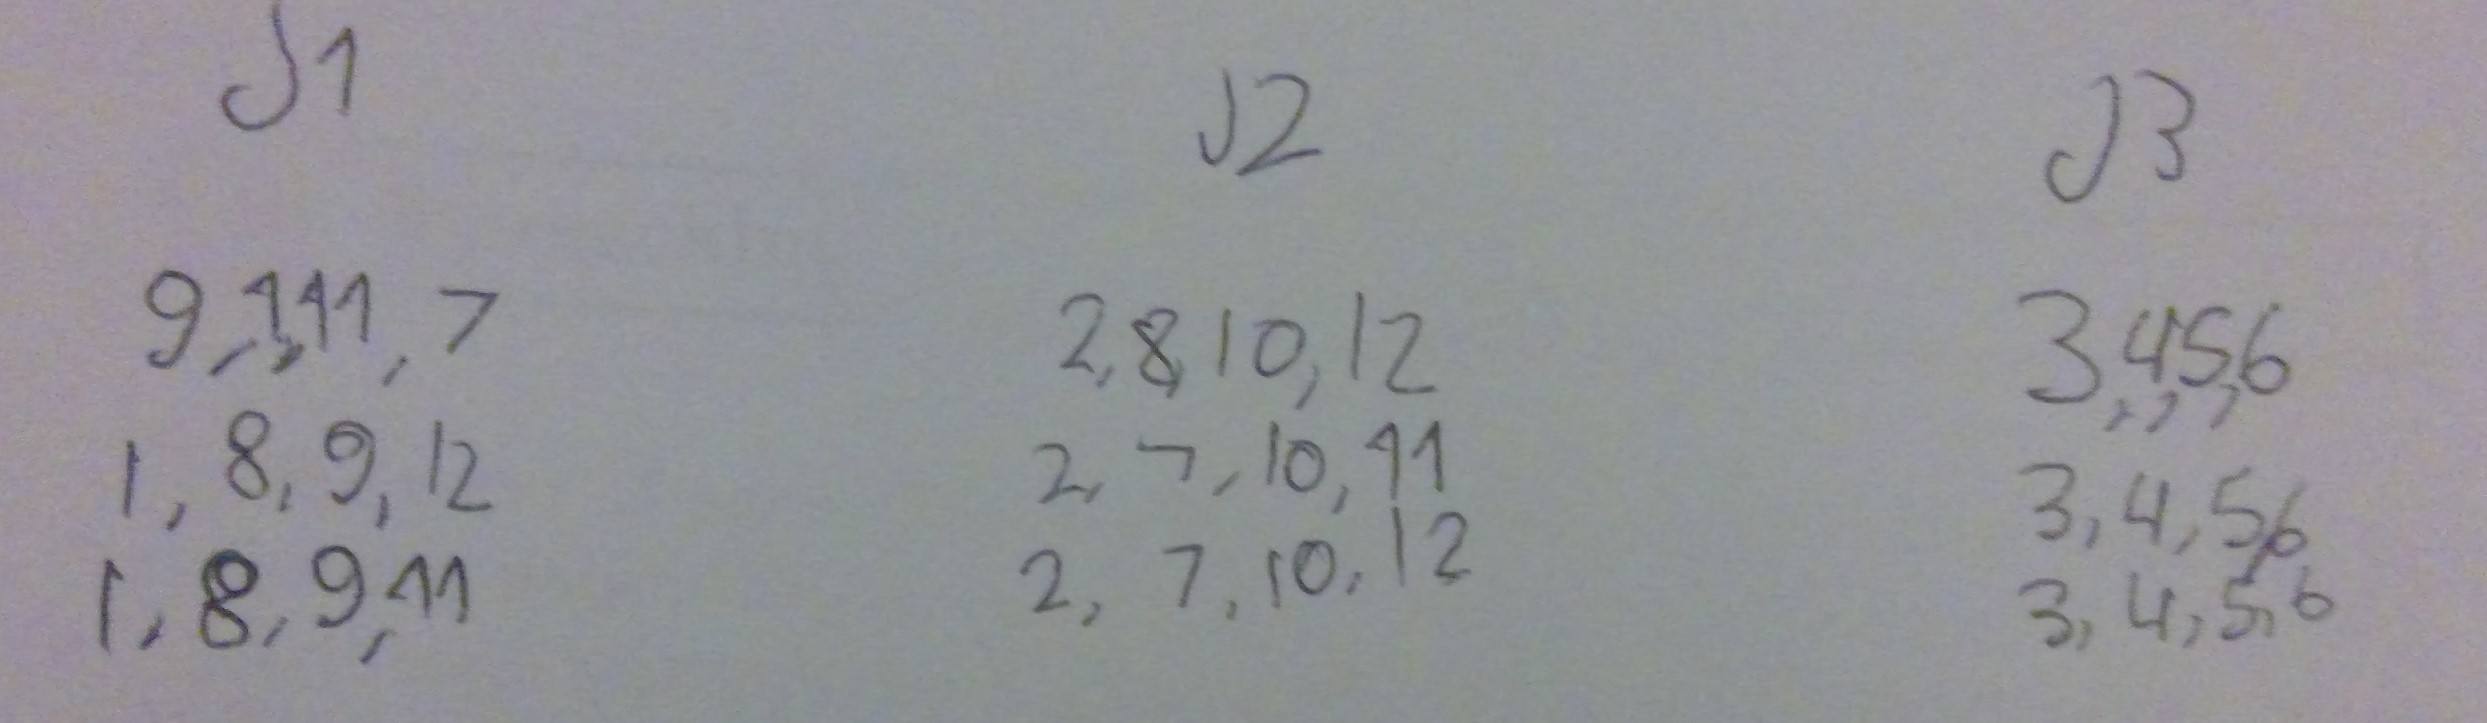 J1 J2 J3
9,1,11,7 2,8,10,12 3,4,5,6
1,8,9,12 2,7,10,11 3,4,5,6
1,8,9,11 2,7,10,12 3,4,5,6